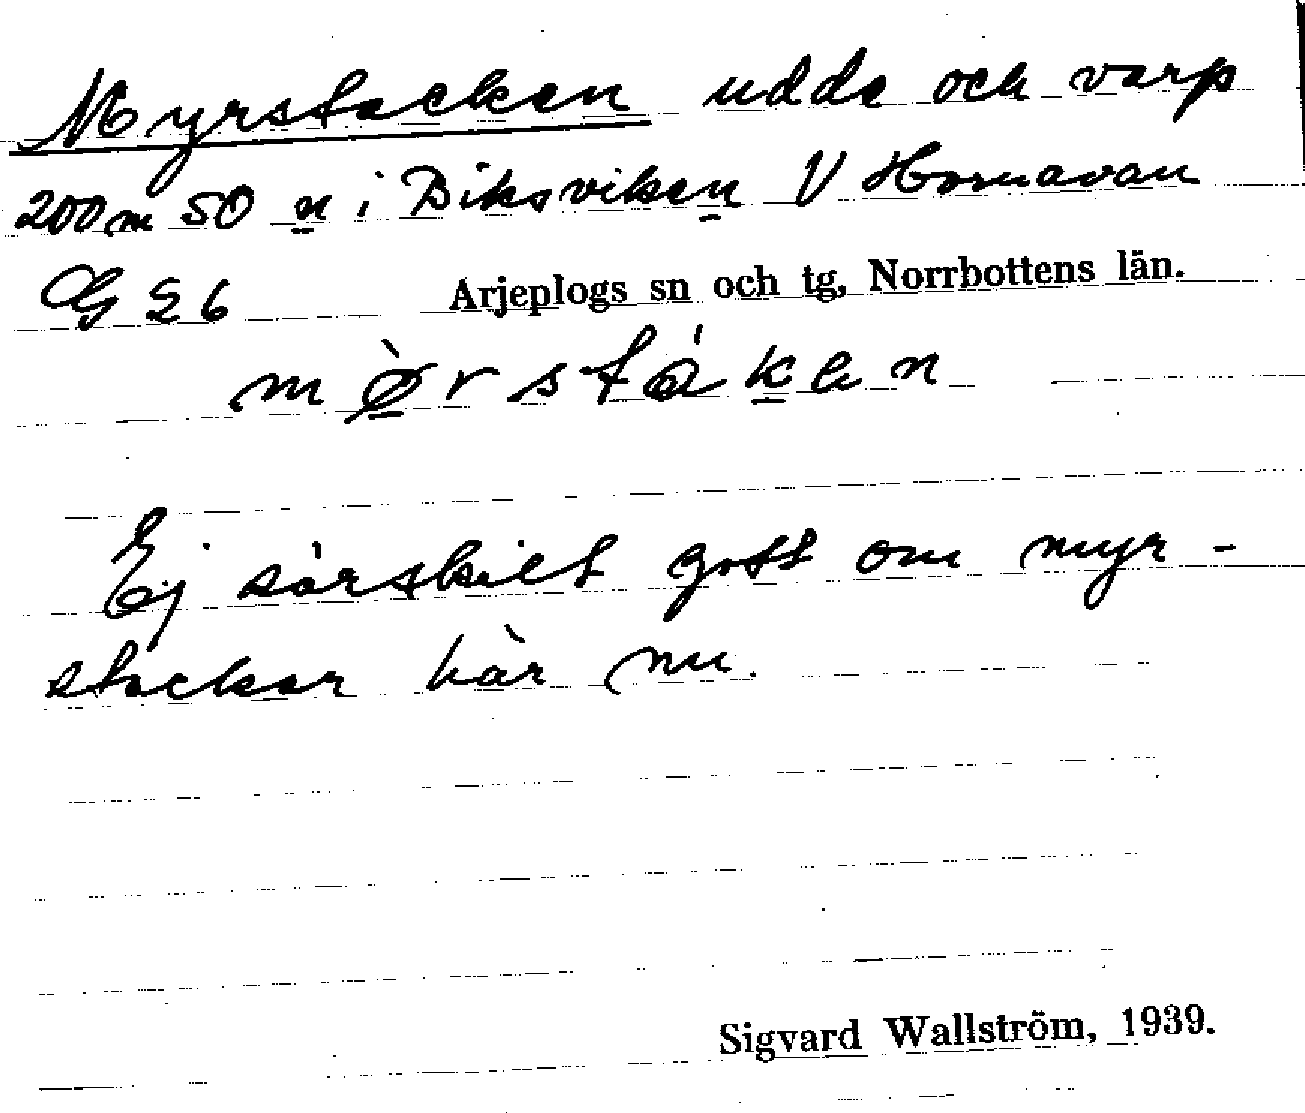 Myrstacken udde och varp
200 m SO n i Biksviken V Hornavan
G 26 Arjeplogs sn och tg, Norrbottens län.
mø̀rstáken
Ej särskilt gott om myr-
stackar här nu.
Sigvard Wallström, 1939.